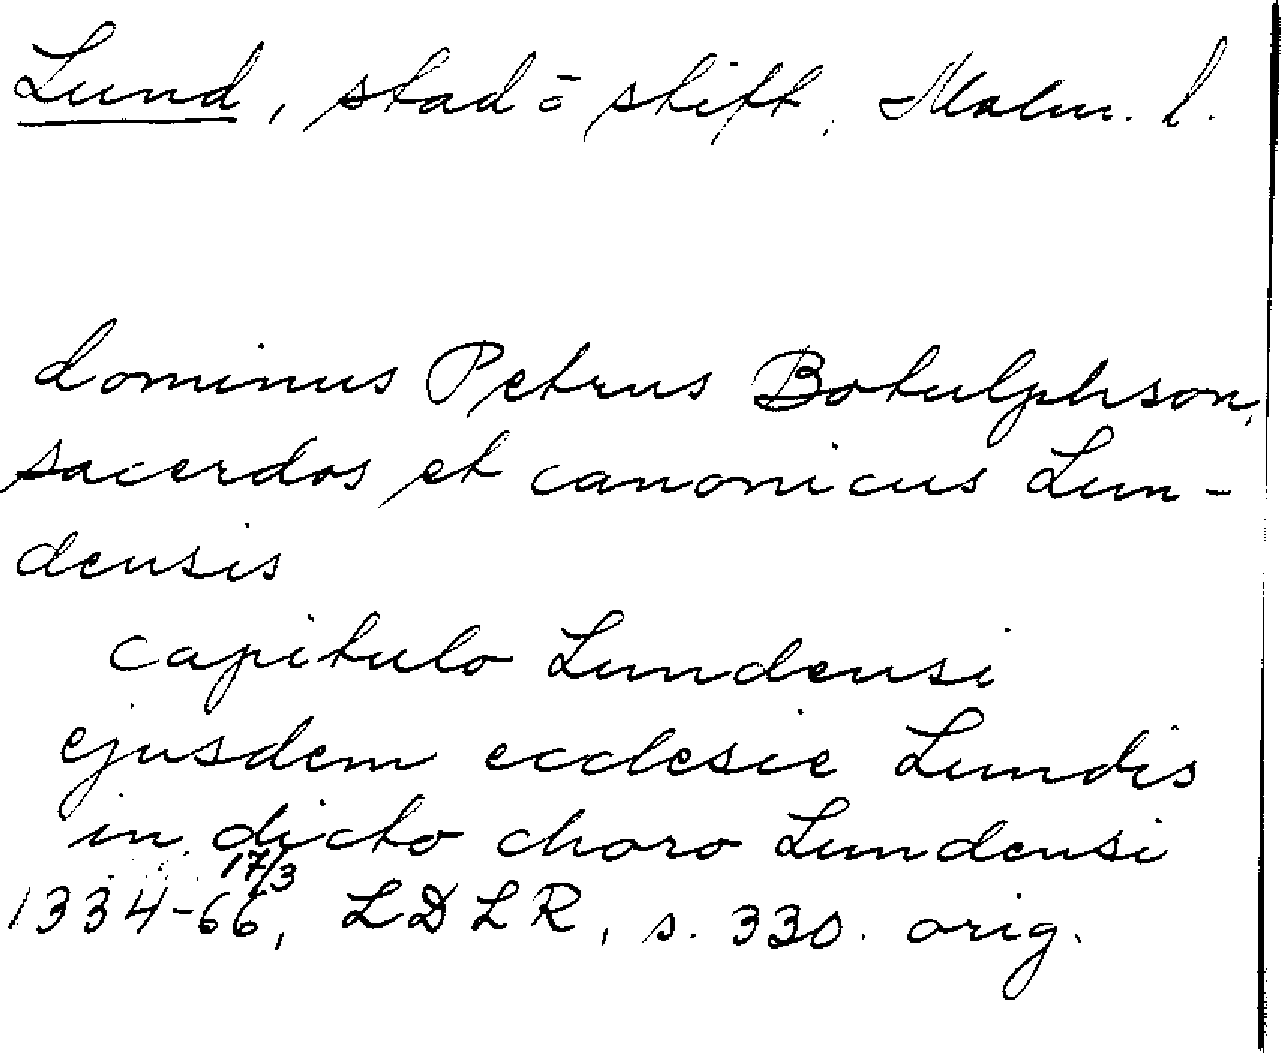 Lund, stad o stift, Malm. l.
dominus Petrus Botulphson,
sacerdos et canonicus Lun-
densis
capitulo Lundensi
ejusdem ecclesie Lundis
in dicto choro Lundensi
17/3
1334-66, LDLR, s. 330. orig.